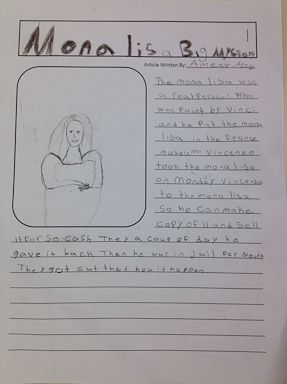 Mona lisa Big Mystery!
Article Written By: Ameer
The mona lisa was
a real person! Who
was paint by Vinci
and he put the mona
lisa in the France
museum! Vincenzo
took the mona lisa
on Monday Vincenzo
to the mona lisa
So he can make
copy of it and sell
it for so cash They a coup of day he
gave it back Then he was in jail for month
They got out that how it happen